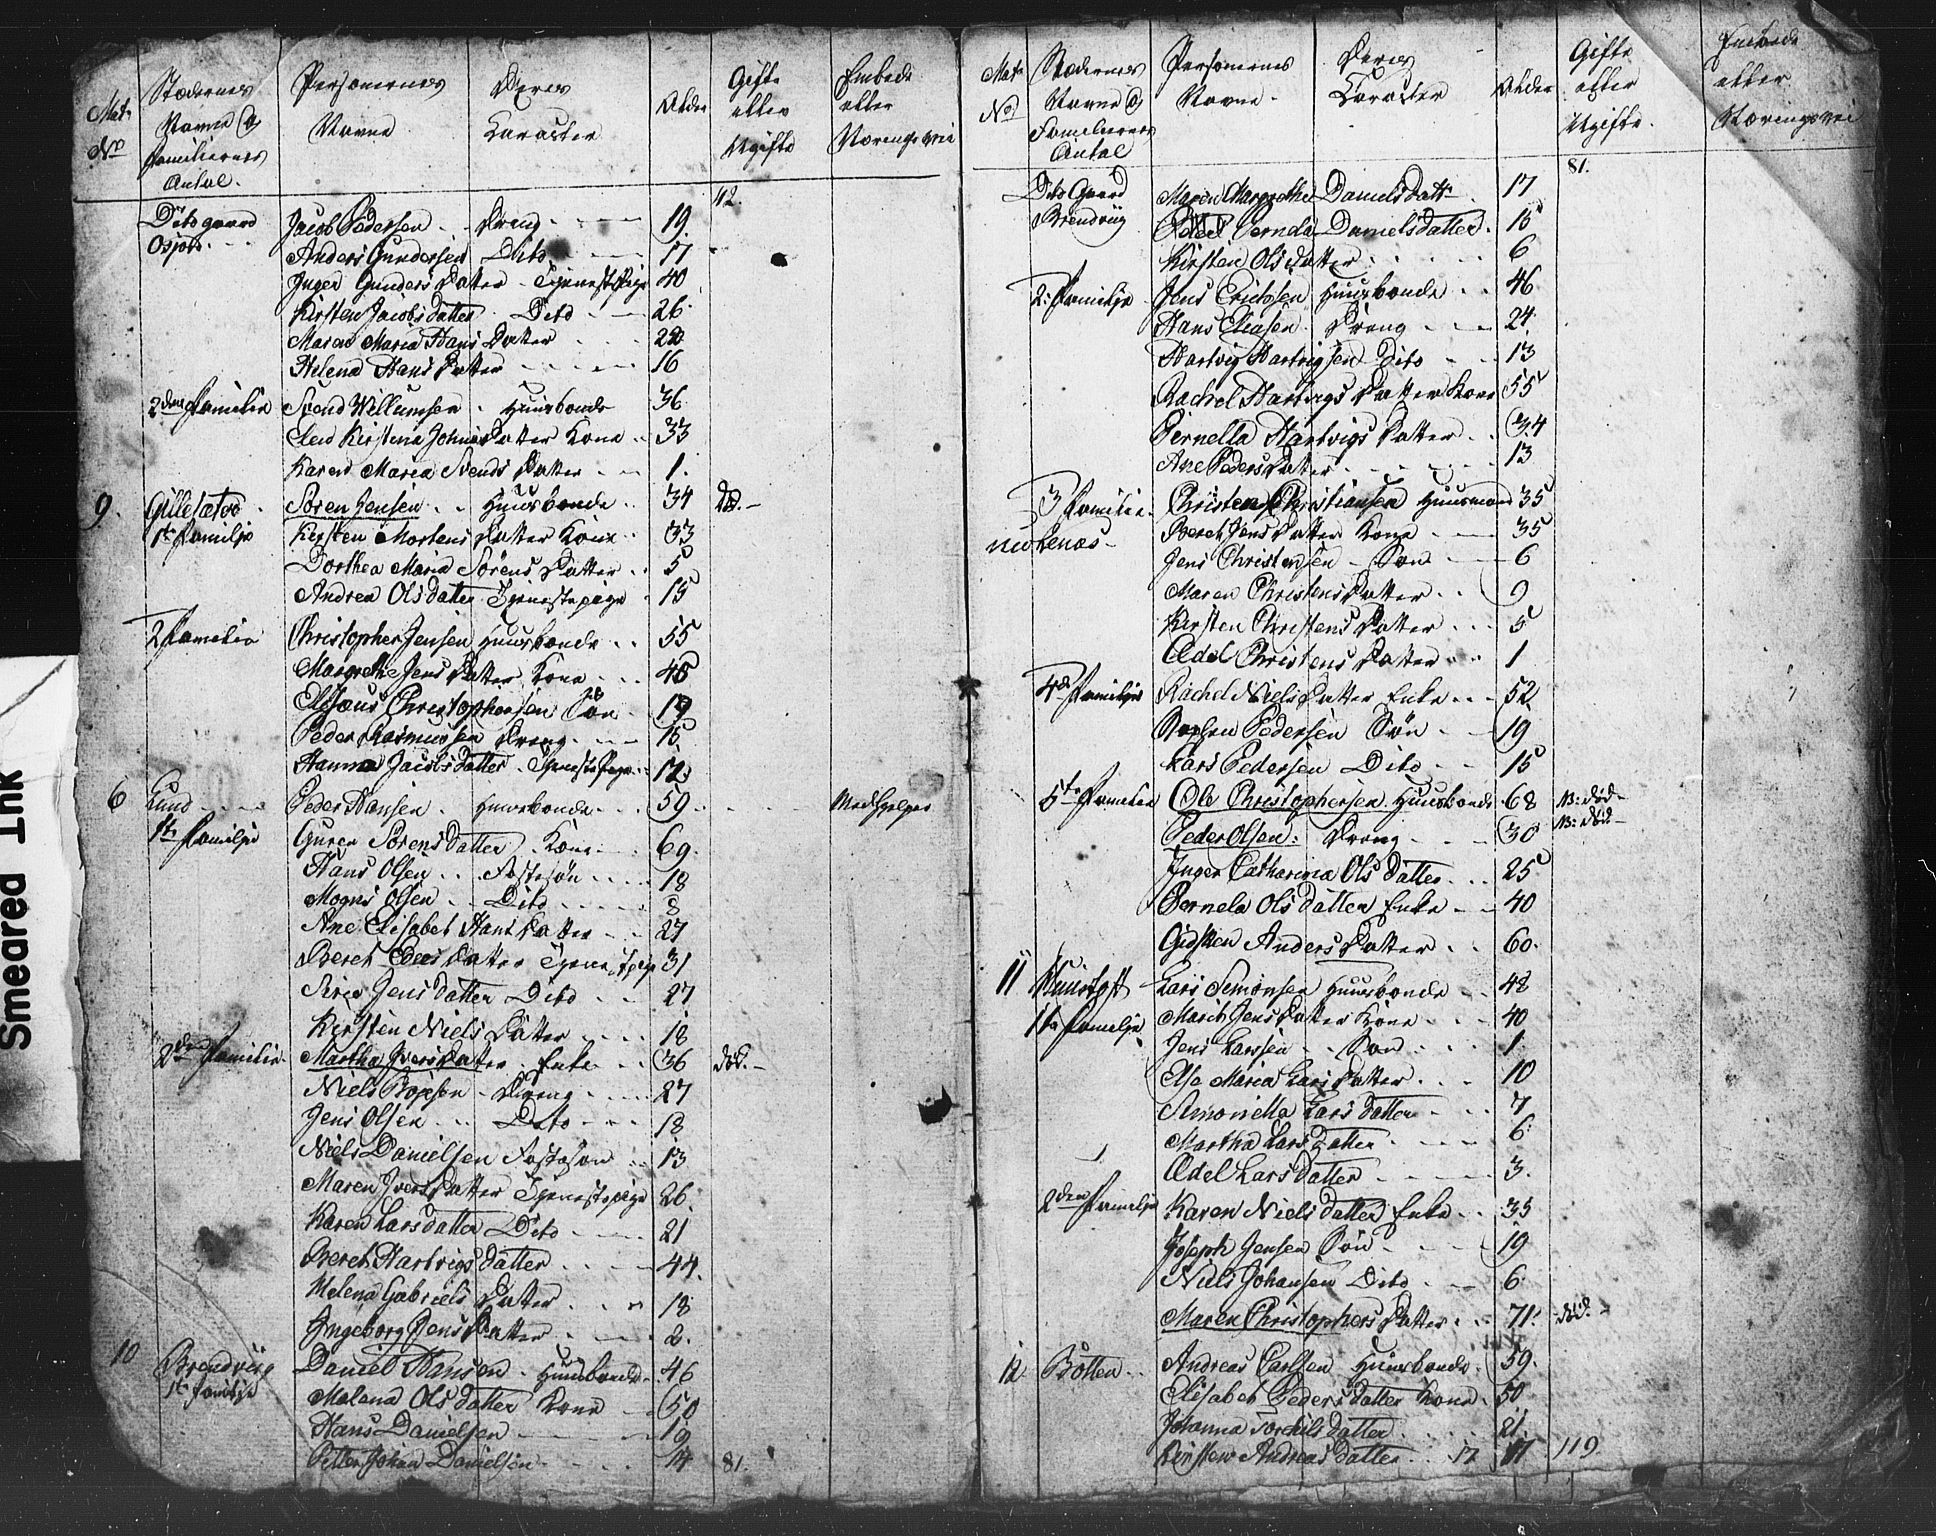 Smeared Ink
Mat. No
Stædernes Navne og Familiernes Antal.
Personernes Navne
Deres Karakter
Alder
Gifte eller Ugifte
Embede eller Næringsvei
42.
Dito gaard Jacob Pedersen Dreng 19.
Anders Gundersen Dito 17
Inger Gunders Datter Tjenestepige 40
Kirsten Jacobs datter Dito 26.
Maren Maria Hans Datter
Helena Hans Datter 16
2den Familie Svend Willumsen Huusbonde 36
Elen Kirstena Johns Datter Kone 33
Karen Maria Svends Datter 1.
9. Gillesætvo Sören Jensen Huusbonde 34 död.
1te Familje Kirsten Mortens Datter Kone 33
Dorthea Maria Sörens Datter 5
Andrea Ols datter Tjenestepige 15
2 Familie Christopher Jensen Huusbonde 55
Margreth Jens Datter Kone
Christophersen Sön 19
Peder Rasmussen Dreng 15
Hanna Jacobs datter Tjeneste Pige 12
6 Lund Peder Hansen Huusbonde 59 Medhjelper
1te Familje Guren Sörens datter Kone 69.
Hans Olsen Fostesön 18
Mogns Olsen Dito 8
Ane Elisabet Hans Datter 27
Beret Datter Tjenestepige 31
Siric Jens datter Dito 27
Kirsten Niels Datter 18
2den Familie Martha Ivers Datter Enke 36 död.
Niels Dreng 27
Jens Olsen Dito 18
Niels Danielsen Fosteson 13
Maren Ivers Datter Tjenestepige 26
Karen Lars datter Dito 21
Beret Hartvigs datter 44.
Helena Gabriels Datter 18
Ingeborg Jens Datter 2.
10 Brendvig Daniel Hansen Huusbonde 46
1te Familje Malena Ols datter Kone 50
Hans Danielsen 19
Petter Johan Danielsen 14 81.
Mat. No
Stædernes Navne og Familiernes Antal
Personernes Navne
Deres Karakter
Alder
Gifte eller Ugifte.
Embede eller Næringsvei
81.
Dito Gaard Maren Margrethe Daniels datt 17
Brendviig Pernela Danielsdatter 15
Kirsten Ols datter 6
2: Familje Jens Ericksen Huusbonde 46
Hans Eliasen Dreng 24
Hartvig Hartvigsen Dito 13
Rachel Hartvigs Datter Kone 55
Pernella Hartvigs Datter 34
Ane Peders Datter 13
3 Familie Christen Christiansen Huusmand 35
Beret Jens Datter Kone 35
Jens Christensen Sön 6
Maren Christens Datter 9
Kirsten Christens Datter 5
Adel Christens Datter 1
4de Familje Rachel Niels Datter Enke 52
Pedersen Sön 19
Lars Pedersen Dito 15
5te Familie Ole Christophersen Huusbonde 68 NB: död
Peder Olsen Dreng 30 NB: död
Inger Catharina Ols datter 25
Pernela Ols datter Enke 40
Anders Datter 60.
11 Lars Simonsen Huusbonde 48
1te Familje Marit Jens Datter Kone 40
Jens Larssen Sön 1
Else Maria Lars Datter 10
Simonetta Lars datter 7
Martha Lars datter 6
Adel Lars datter 3.
2den Familje Karen Niels datter Enke 35
Joseph Jensen Sön 19
Niels Johansen Dito 6
Maren Christophers Datter 71. död.
12. Botten Andreas Carlsen Huusbonde 59
Elisabet Peders datter Kone 50
Johanna Torchils datter 21.
Kirsten Andreas datter 17 17 119